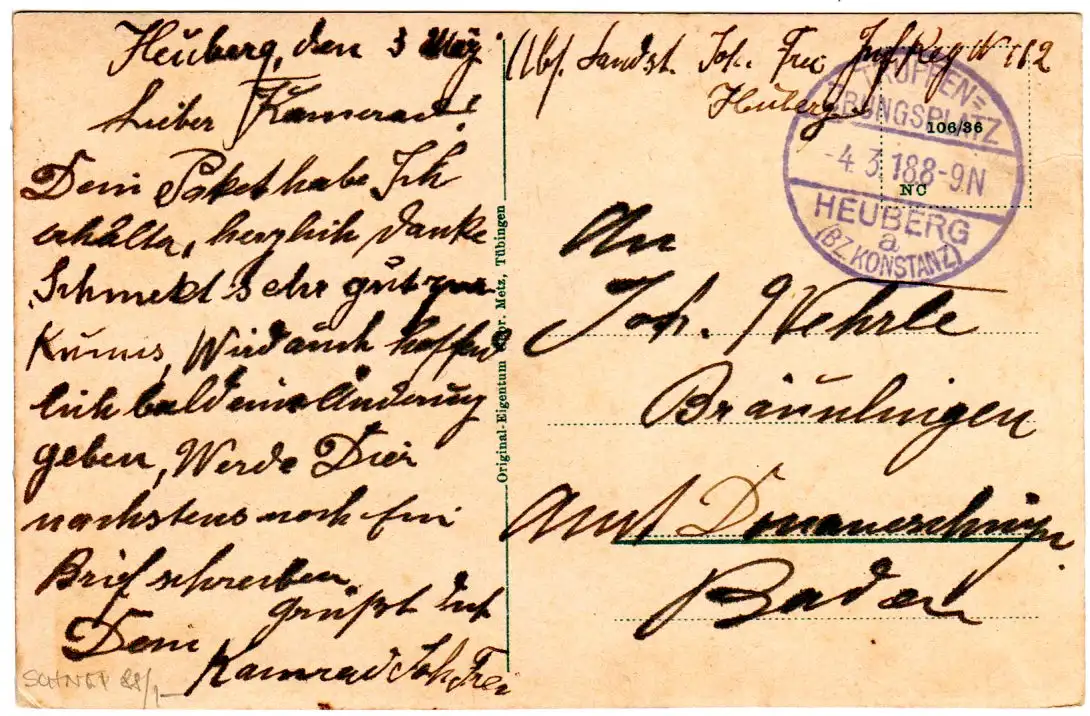 Heuberg, den 3 März
Lieber Kamerad!
Dein Paket habe Ich
erhälta, herzlich danke
Schmekt sehr gut zum
Kumis, Wird auch hoffend
lich bald eine Änderung
geben, Werde Dier
nachstens noch ein
Brief schreiben,
grüßt dich
Dein
Kamrad Joh. Frei
Abs. Landst. Joh. Frei Inf Reg N 182
Heuberg
TRUPPEN=
ÜBUNGSPLATZ
-4.3.18 8-9N
HEUBERG
a
(BZ. KONSTANZ)
106/36
NC
An
Joh. Wehrle
Bräunlingen
Amt Donaueschingen
Baden
Original-Eigentum Metz, Tübingen